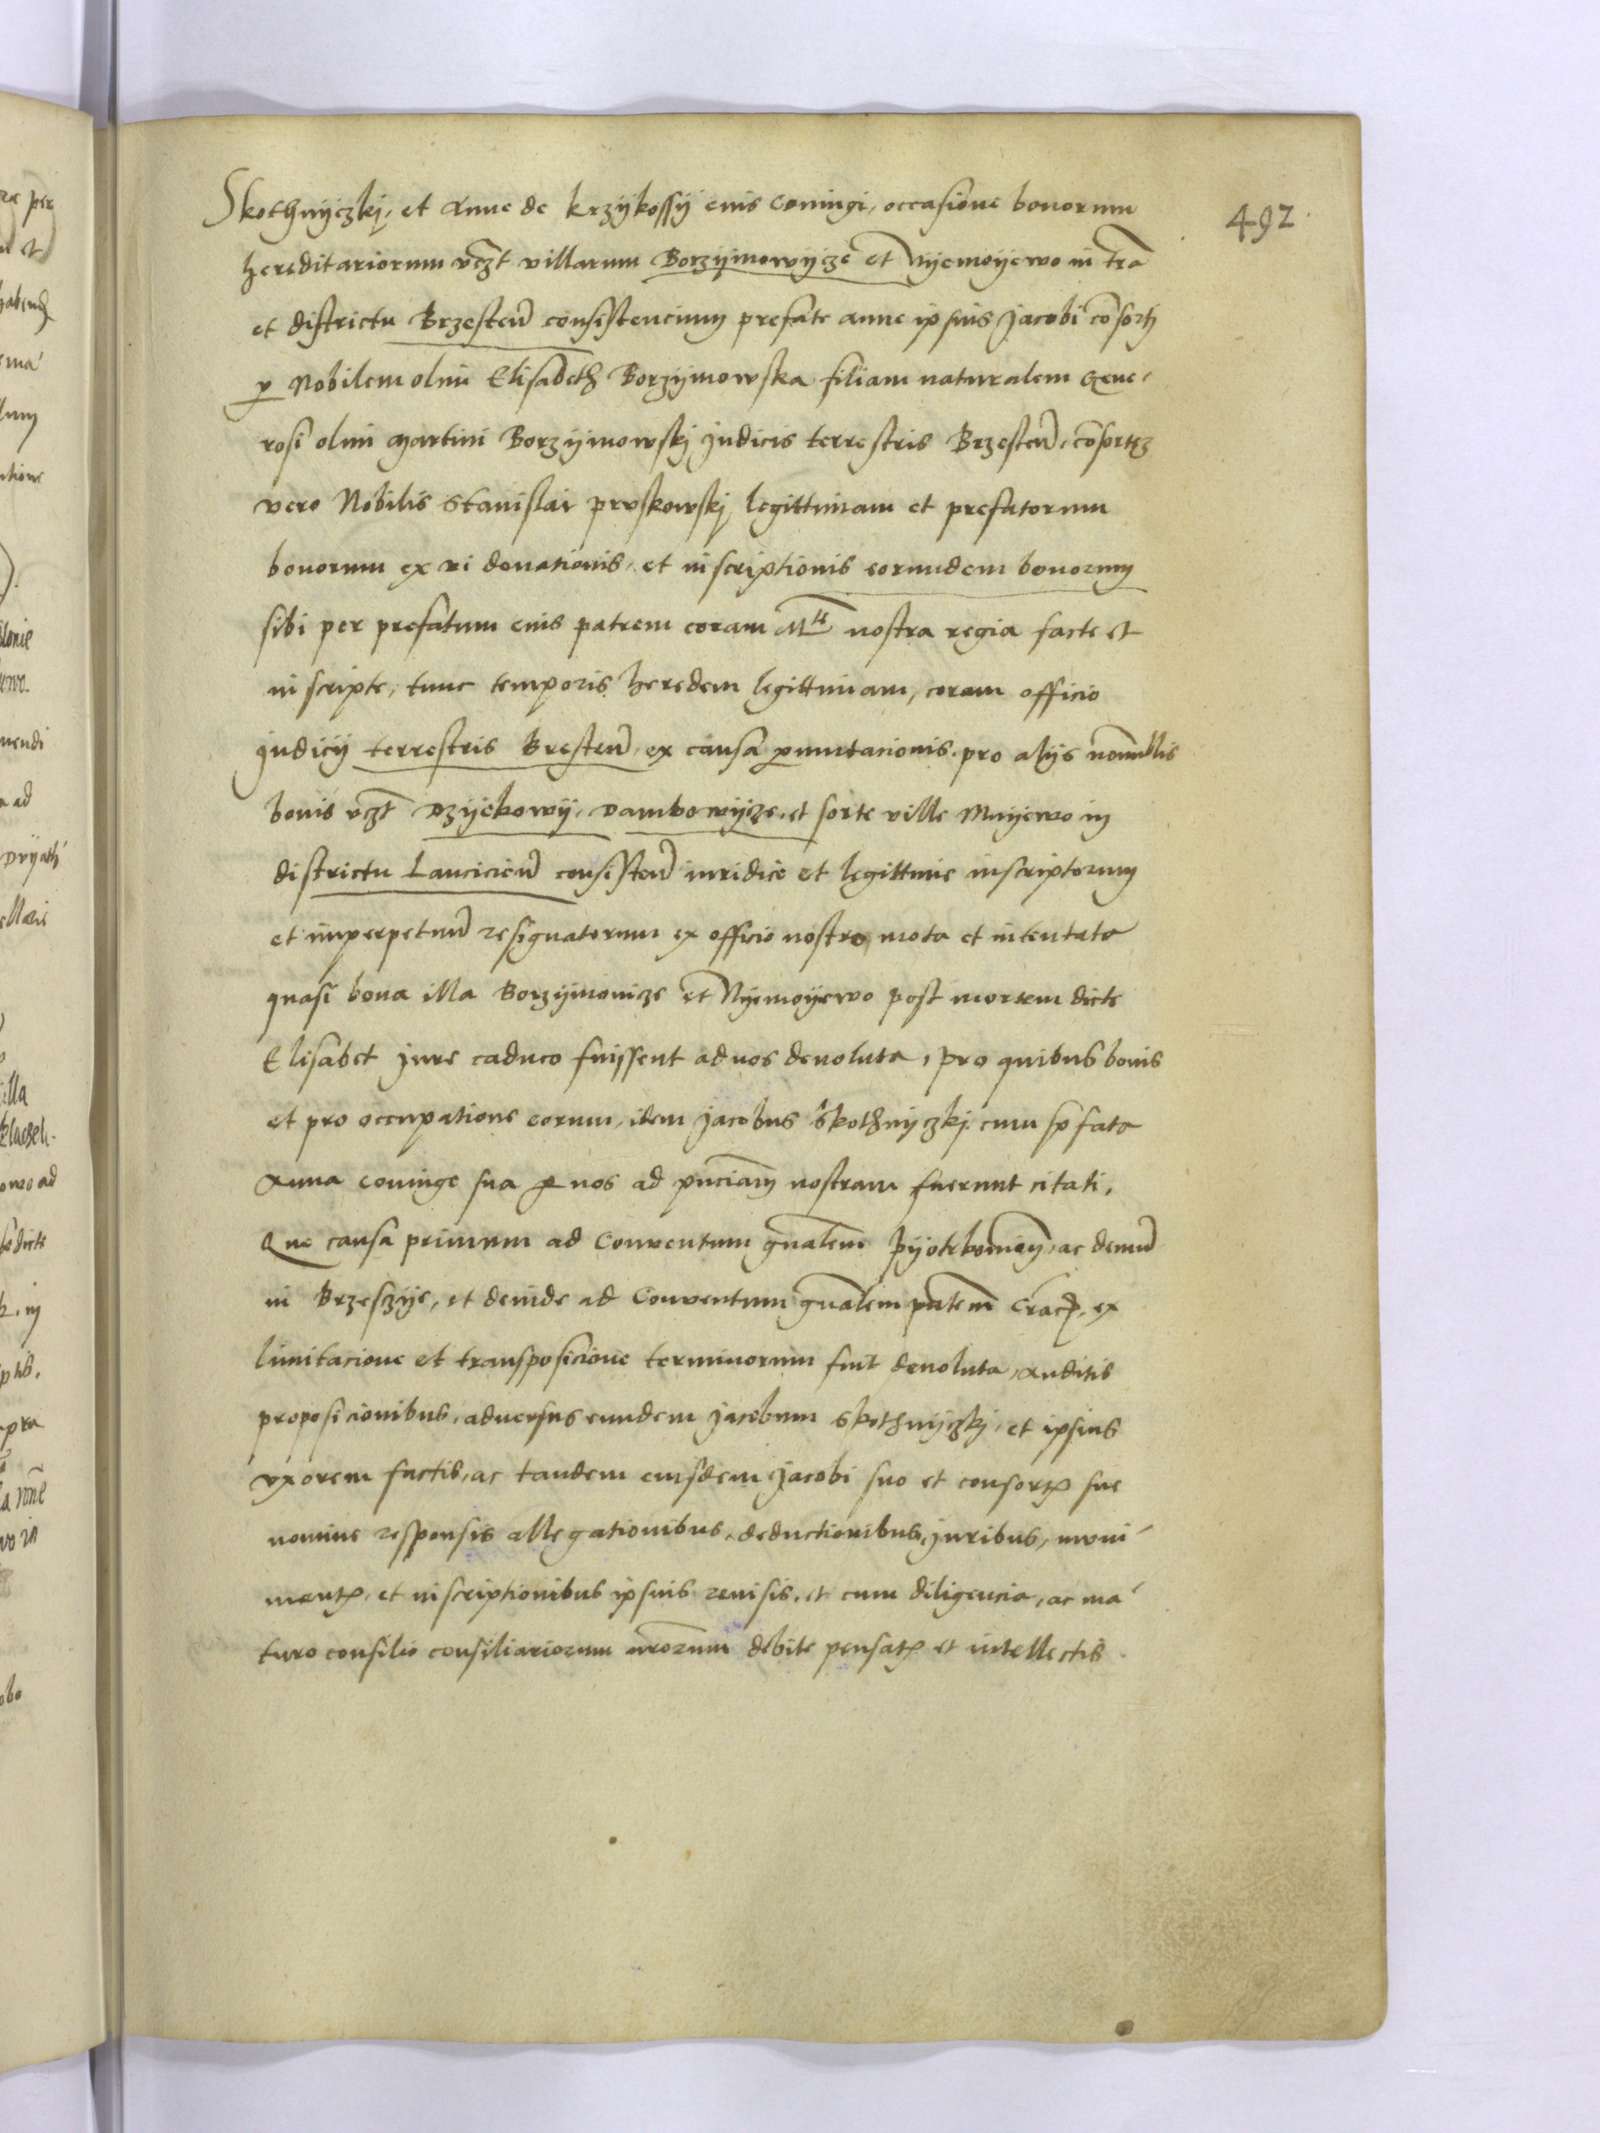 492
Skothnyczkj, et Anne de Krzykossÿ eius coniugi, occasione bonorum
hereditariorum vczt villarum Borzymowÿcze et Nÿemoÿewo in tra
et districtu Brzesten consistencium prefate anne ipsius Jacobi cosorti
p Nobilem olim Elisabeth Borzÿmowska filiam naturalem Gene,
rosi olim Martini Borzÿmowskj judicis terrestris Brzesten, cosortem
vero Nobilis Stanislai pruskowskj legittimam et prefatorum
bonorum ex vi donationis, et inscriptionis eorundem bonorum
sibi per prefatum eius patrem coram Mte nostra regia facte et
inscripte, tunc temporis heredem legittimam, coram officio
judicij terrestris Bresten, ex causa pmutacionis pro alijs nonnullis
bonis vczt Dzÿekowÿ, Dambowÿcze, et sorte ville Mnÿewo in
districtu Lancicien consisten iuridice et legittime inscriptorum
et imperpetuu resignatorum ex officio nostro mota et intentata
quasi bona illa Borzÿmovicze et Nÿemoÿewo post mortem dicte
Elisabet jure caduco fuissent ad nos devoluta, pro quibus bonis
et pro occupatione eorum, idem Jacobus Skothnÿczkj cum pfata
Anna coniuge sua p nos ad pnciam nostram fuerunt citati,
Que causa primum ad Conventum gnalem Pÿotrkovien, ac demu
in Brzesczÿe, et deinde ad Conventum gnalem pntem Crac, ex
limitacione et transposicione terminorum fuit devoluta, Auditis
proposicionibus, adversus eundem Jacobum Skothnÿczkj, et ipsius
vxorem factis, ac tandem eiusdem Jacobi suo et consortis sue
nomine responsis allegationibus, deductionibus, juribus, muni-
mentis, et inscriptionibus ipsius revisis, et cum diligencia, ac ma-
turo consilio consiliariorum nrorum debite pensatis et intellectis